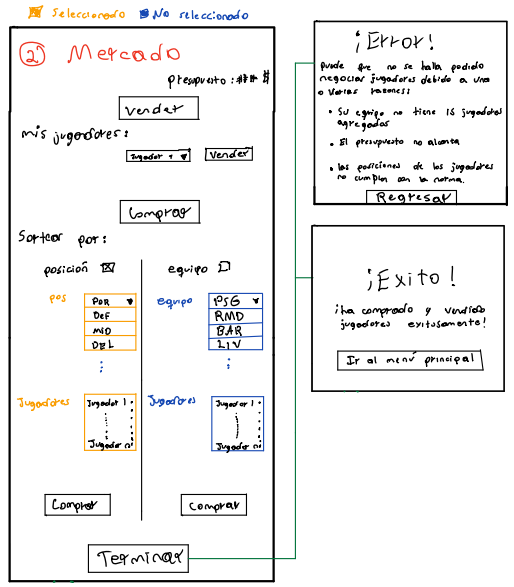 Seleccionado
No seleccionado
2 Mercado
presupuesto : ### $
vender
mis jugadores:
Jugador 1
Vender
Comprar
Sortear por:
posición
equipo
pos
POR
DEF
MID
DEL
equipo
PSG
RMD
BAR
LIV
Jugadores
Jugador 1
Jugador n
Jugadores
Jugador 1
Jugador n
Comprar
Comprar
Terminar
¡Error!
puede que no se halla podido
negociar jugadores debido a una
o varias razones:
• Su equipo no tiene 15 jugadores
agregados
• El presupuesto no alcanza
• las posiciones de los jugadores
no cumplen con la norma.
Regresar
¡Exito!
¡ha comprado y vendido
jugadores exitosamente!
Ir al menú principal